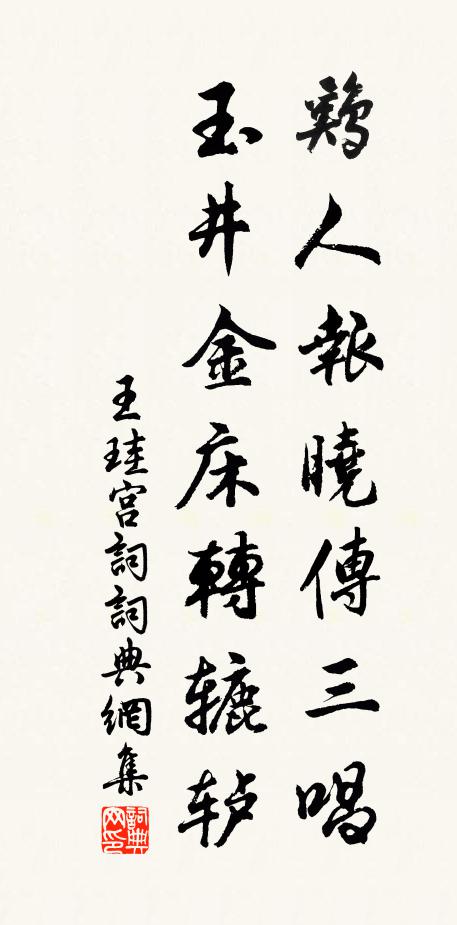 鷄人報曉傳三唱
玉井金床轉辘轳
王珪宫詞詞典網集
詞典網印